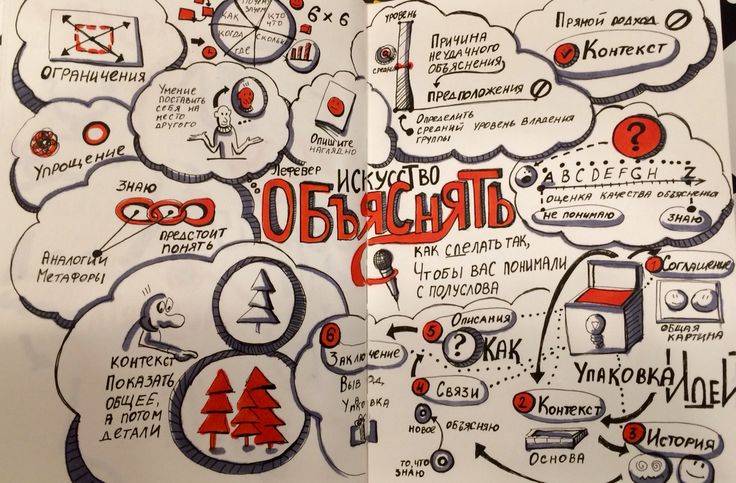 ОГРАНИЧЕНИЯ
ПОЧЕМУ
ЗАЧЕМ
КАК
КТО
ЧТО
КОГДА
СКОЛЬКО
ГДЕ
6 × 6
УМЕНИЕ
ПОСТАВИТЬ
СЕБЯ НА
МЕСТО
ДРУГОГО
ОПИШИТЕ
НАГЛЯДНО
УПРОЩЕНИЕ
ЗНАЮ
ПРЕДСТОИТ
ПОНЯТЬ
АНАЛОГИИ
МЕТАФОРЫ
КОНТЕКСТ
ПОКАЗАТЬ
ОБЩЕЕ,
А ПОТОМ
ДЕТАЛИ
УРОВЕНЬ
СРЕДНИЙ
ПРИЧИНА
НЕУДАЧНОГО
ОБЪЯСНЕНИЯ
ПРЕДПОЛОЖЕНИЯ
ОПРЕДЕЛИТЬ
СРЕДНИЙ УРОВЕНЬ ВЛАДЕНИЯ
ГРУППЫ
ПРЯМОЙ ПОДХОД
КОНТЕКСТ
?
A B C D E F G H Z
ОЦЕНКА КАЧЕСТВА ОБЪЯСНЕНИЯ
НЕ ПОНИМАЮ
ЗНАЮ
ЛЕФЕВЕР
ИСКУССТВО
ОБЪЯСНЯТЬ
КАК СДЕЛАТЬ ТАК,
ЧТОБЫ ВАС ПОНИМАЛИ
С ПОЛУСЛОВА
УПАКОВКА ИДЕЙ
1 СОГЛАШЕНИЕ
ОБЩАЯ
КАРТИНА
2 КОНТЕКСТ
ОСНОВА
3 ИСТОРИЯ
4 СВЯЗИ
НОВОЕ
ОБЪЯСНЯЮ
ТО, ЧТО
ЗНАЮ
5 ОПИСАНИЯ
? КАК
6
ЗАКЛЮЧЕНИЕ
ВЫВОД,
УПАКОВКА